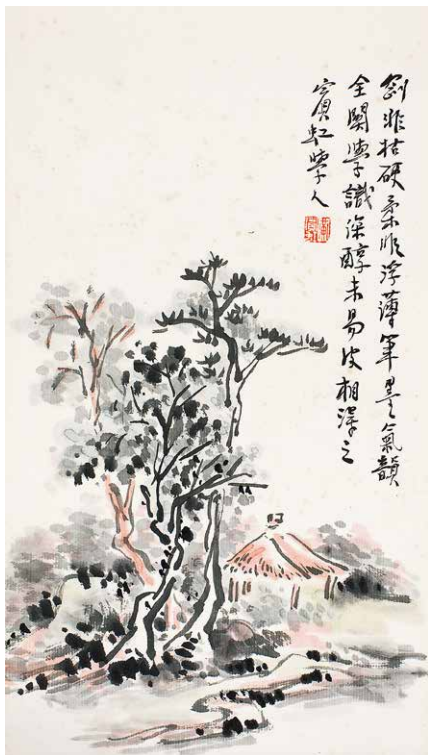 剛非枯硬柔非浮薄筆墨氣韻
全關學識深醇未易皮相澤之
賓虹學人